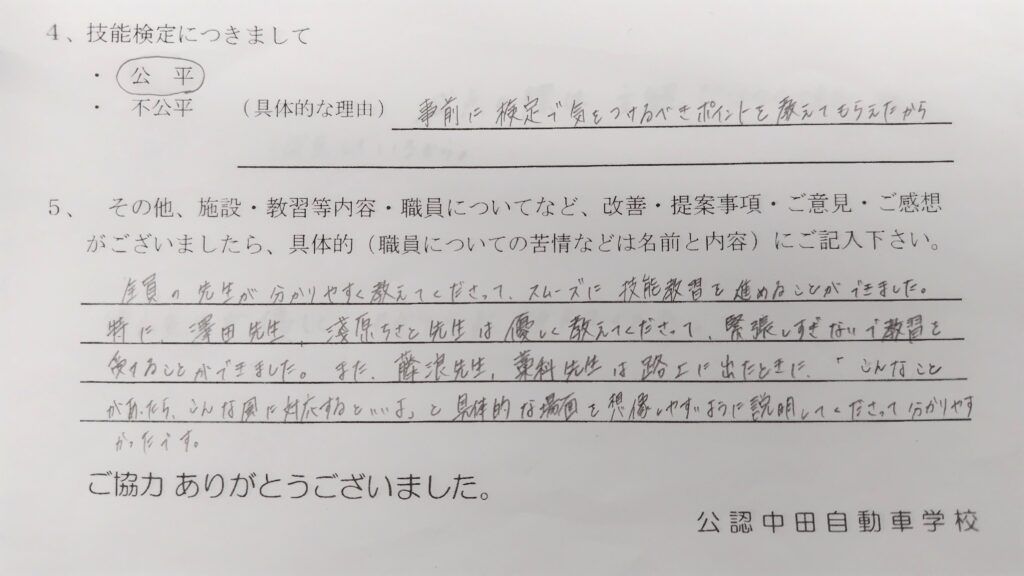 4、技能検定につきまして
・ 公 平
・ 不公平 （具体的な理由） 事前に検定で気をつけるべきポイントを教えてもらえたから
5、 その他、施設・教習等内容・職員についてなど、改善・提案事項・ご意見・ご感想
がございましたら、具体的（職員についての苦情などは名前と内容）にご記入下さい。
全員の先生が分かりやすく教えてくださって、スムーズに技能教習を進めることができました。
特に、澤田先生、淺原ちさと先生は優しく教えてくださって、緊張しすぎないで教習を
受けることができました。また、藤浪先生、藁科先生は路上に出たときに、「こんなこと
があったら、こんな風に対応するといいよ」と具体的な場面を想像しやすいように説明してくださって分かりやす
かったです。
ご協力 ありがとうございました。
公認中田自動車学校